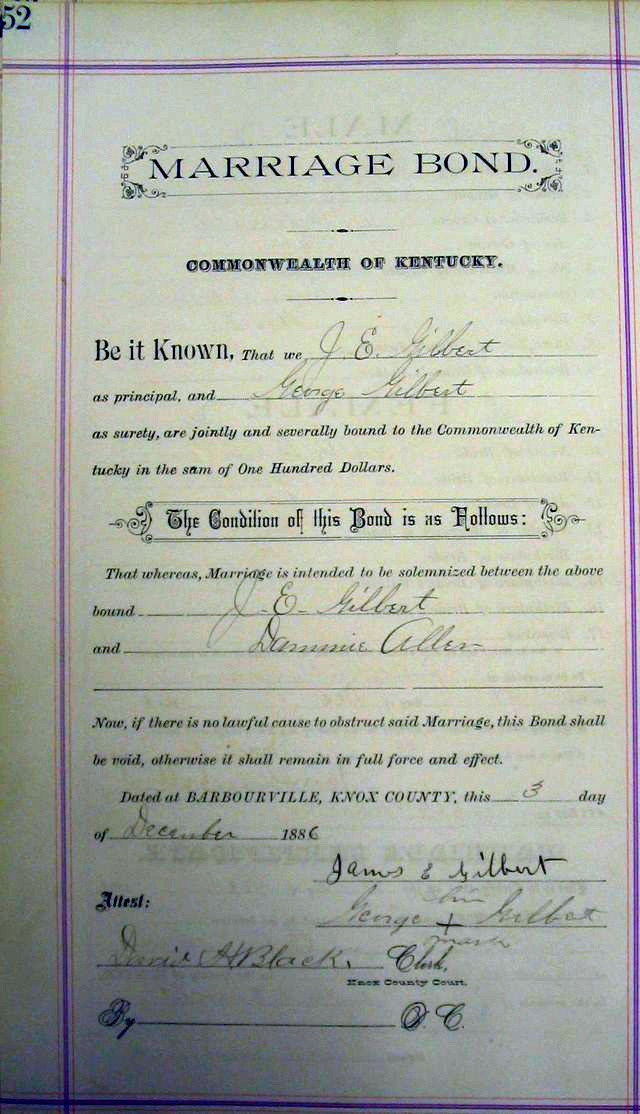 52
MARRIAGE BOND.
COMMONWEALTH OF KENTUCKY.
Be it Known, That we J. E. Gilbert
as principal, and George Gilbert
as surety, are jointly and severally bound to the Commonwealth of Ken-
tucky in the sum of One Hundred Dollars.
The Condition of this Bond is as Follows:
That whereas, Marriage is intended to be solemnized between the above
bound J. E. Gilbert
and Dammie Allen
Now, if there is no lawful cause to obstruct said Marriage, this Bond shall
be void, otherwise it shall remain in full force and effect.
Dated at BARBOURVILLE, KNOX COUNTY, this 3 day
of December 1886
James E Gilbert
Attest:
his
George + Gilbert
mark
David H Black, Clerk,
Knox County Court.
By D. C.